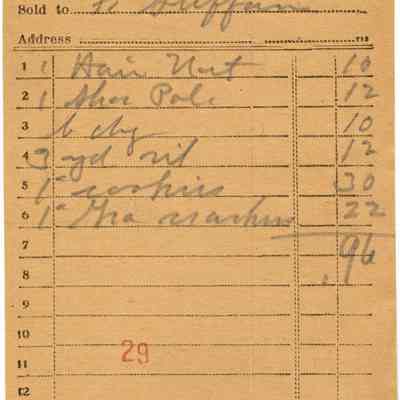 Sold to
Address
1 1 Hair Net 10
2 1 Shoe Pol. 12
3 10
4 3 yd 12
5 1 cookies 30
6 1 Gra crackers 22
7 .96
8
9
10
29
11
12